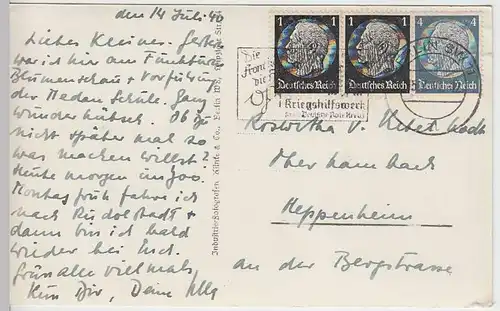 den 14 Juli 40
Liebes Kleines. Gestern
war ich hier am Funkturm
Blumenschau + Vorführung
der Medau Schule. Ganz
wunderhübsch. Ob Du
nicht später mal so
was machen willst?
Heute morgen im Zoo.
Montag früh fahre ich
nach Rudolstadt +
dann bin ich bald
wieder bei Euch.
Grüß alle vielmals
Deine
Industrie-Fotografen, Klinke & Co., Berlin W8,
1
1
4
Deutsches Reich
Deutsches Reich
Deutsches Reich
Die
die
Kriegshilfswerk
Deutsche Rote Kreuz
BERLIN SW
Roswitha v.
Oberhambach
Heppenheim
an der Bergstrasse